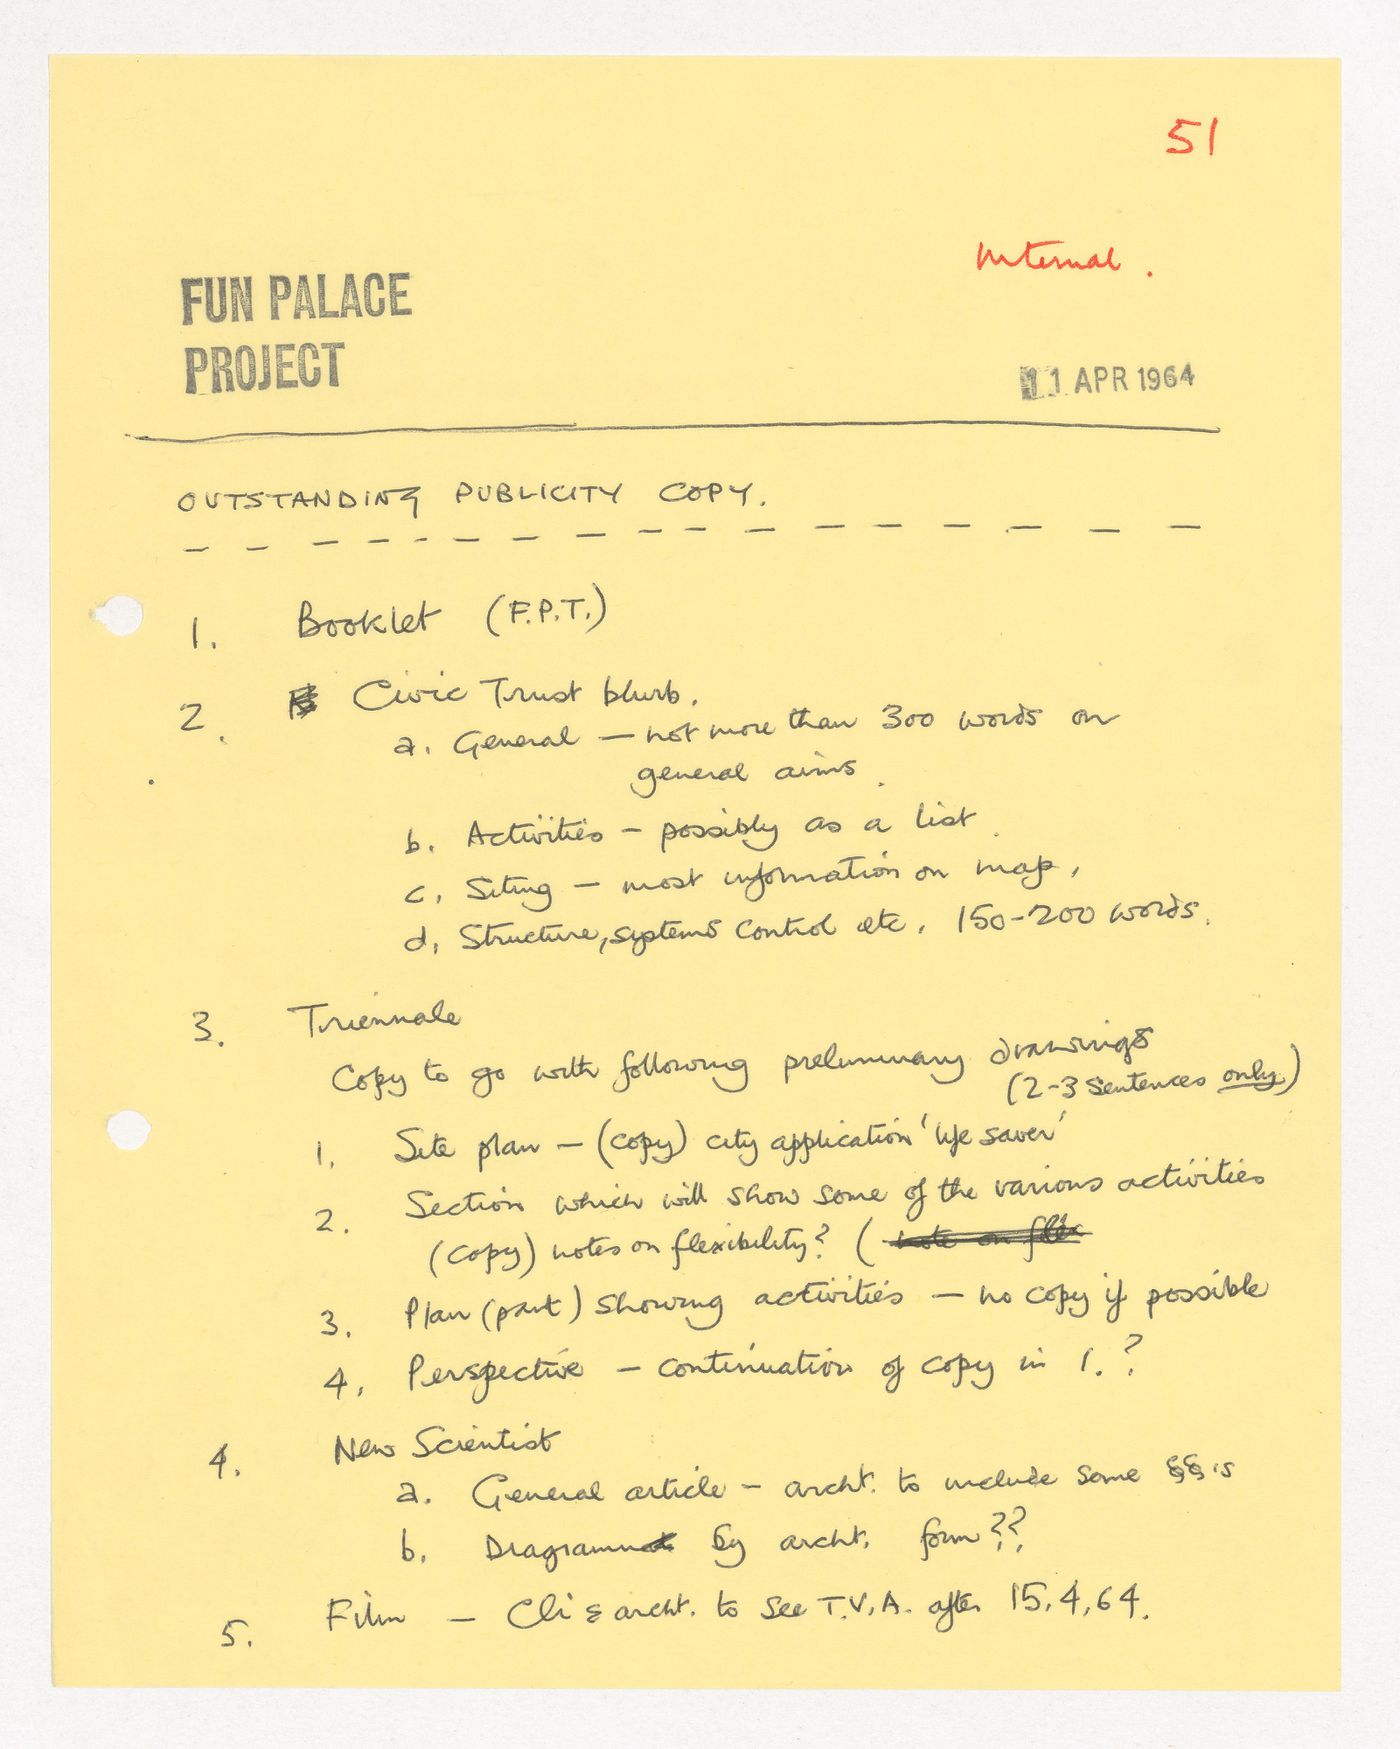 51
Internal.
FUN PALACE
PROJECT
11 APR 1964
OUTSTANDING PUBLICITY COPY.
1. Booklet (F.P.T.)
2. Civic Trust blurb.
a. General – not more than 300 words on
general aims.
b. Activities – possibly as a list.
c. Siting – most information on map.
d. Structure, systems control etc. 150-200 words.
3. Triennale
Copy to go with following preliminary drawings
(2-3 sentences only)
1. Site plan – (copy) city application 'life saver'
2. Section which will show some of the various activities
(copy) notes on flexibility? ( note on flex
3. Plan (part) showing activities – no copy if possible
4. Perspective – continuation of copy in 1.?
4. New Scientist
a. General article – archt. to include some §§'s
b. Diagram by archt. form??
5. Film – Cli & archt. to see T.V.A. after 15.4.64.